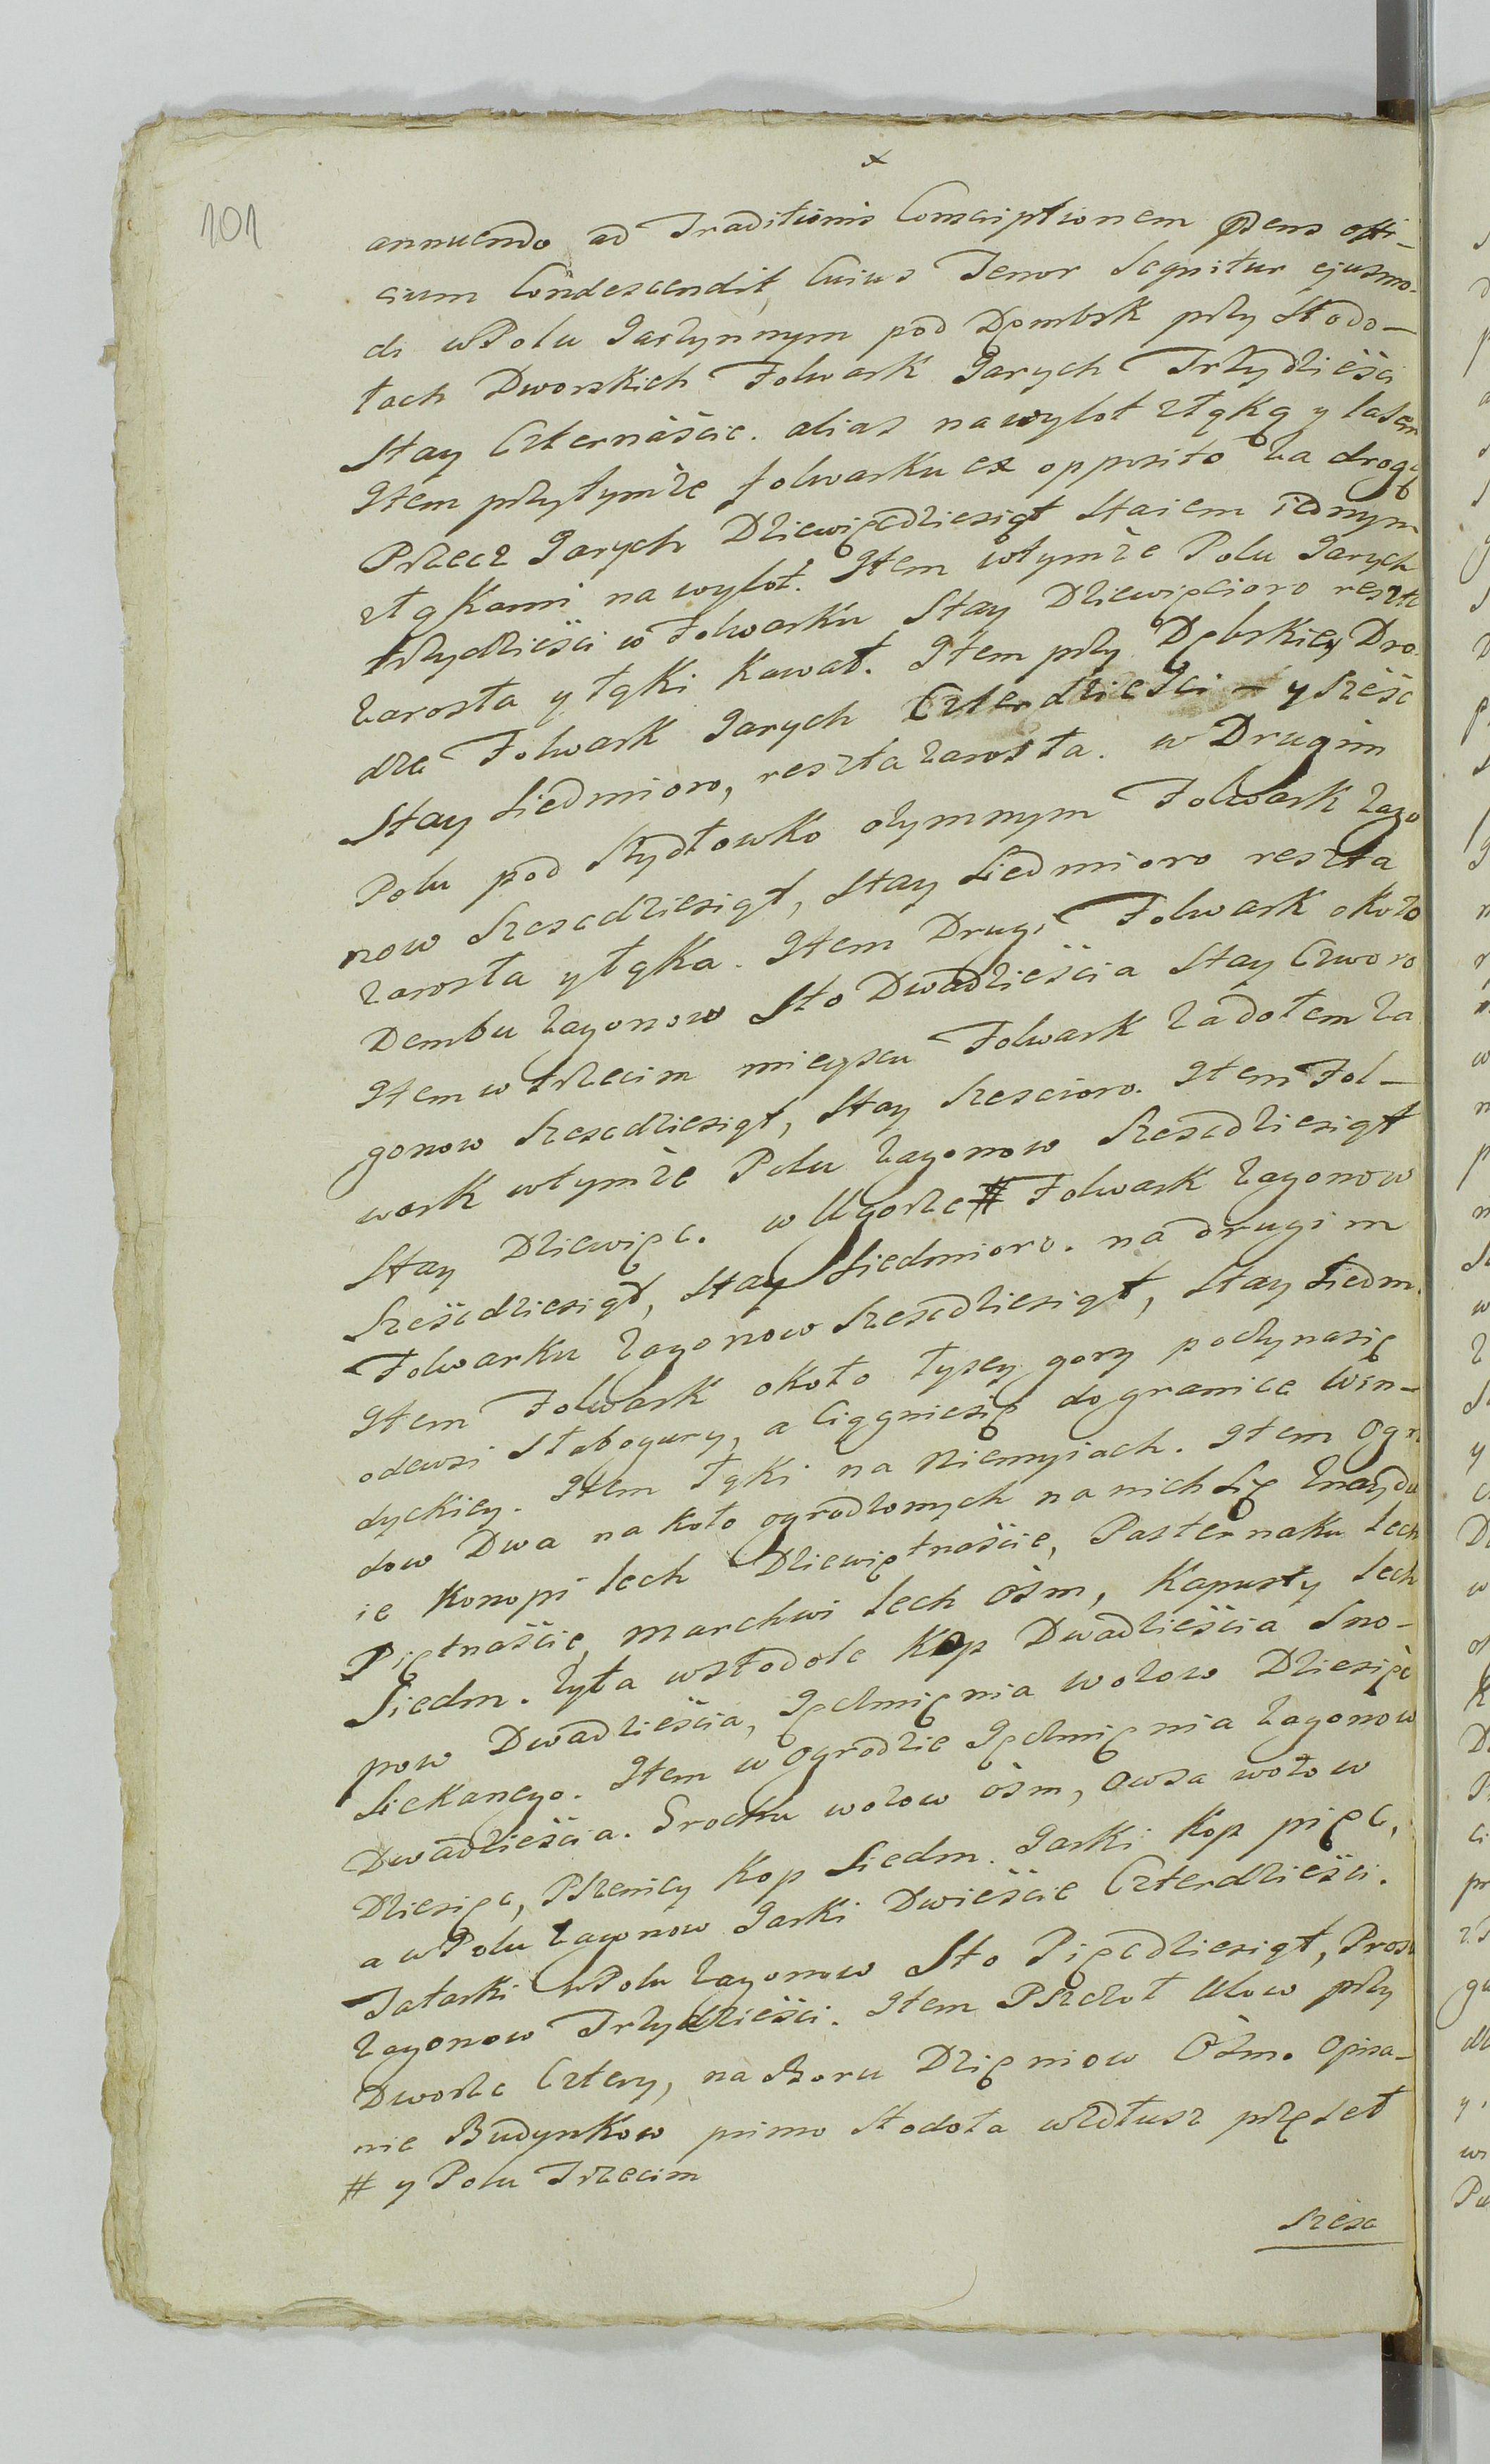 x
101
annuendo ad Traditionis Conscriptionem pdens offi-
cium Condescendit, Cuius Tenor Sequitur ejusmo-
di w Polu Jarzynnym pod Dęmbsk przy Stodo-
łach Dworskich Folwark Jarych Trzydzieści
Stay Czternaście. alias na wylot z łąką y lasem
Item przy tymże folwarku ex opposito za drogą
Przecz Jarych Dziewięcdziesiąt Staiem iednym
z łąkami na wylot. Item w tymże Polu Jarych
trzydzieści w Folwarku Stay Dziewięcioro reszta
zarosła y łąki Kawał. Item przy Dębskiey Dro-
dze Folwark Jarych Czterdzieści - y sześć
Stay Siedmioro, reszta zarosła. w Drugim
Polu pod Szydłowko ozymnym Folwark Zago
now Szescdziesiąt, Stay Siedmioro reszta
zarosła y łąka. Item Drugi Folwark około
Dembu Zagonow Sto Dwadzieścia Stay Czworo
Item w trzecim mieyscu Folwark za dołem Za
gonow Szescdziesiąt, Stay Szescioro. Item Fol-
wark w tymże Polu Zagonow Szescdziesiąt
Stay Dziewięc. w Ugorze # Folwark Zagonow
Sześcdziesiąt, Stay Siedmioro. na drugim
Folwarku Zagonow Szescdziesiąt, Stay Siedm.
Item Folwark około łysey gory poczyna się
odewsi Słabogury, a Ciągnie się do granice Win-
dyckiey. Item łąki na Niemyiach. Item Ogro
dow Dwa na koło ogrodzonych na nich Się Znaydu
ie Konopi lech Dziewiętnaście, Pasternaku lech
Piętnaście, marchwi lech ośm, Kapusty lech
Siedm. Zyta w stodole Kop Dwadzieścia Sno-
pow Dwadzieścia, Jęczmięnia wozow Dziesięć
Siekanego. Item w ogrodzie Jęczmięnia Zagonow
Dwadzieścia. Grochu wozow ośm, Owsa wozow
Dziesięc, Pszenicy Kop Siedm. Jarki Kop pięc,
a w Polu Zagonow Jarki Dwieście Czterdzieści.
Tatarki w Polu Zagonow Sto Pięcdziesiąt, Prosa
Zagonow Trzydzieści. Item Pszczoł Ulow przy
Dworze Cztery, na Boru Dzięniow Ośm. Opisa-
nie Budynkow primo Stodoła wzdłusz przęseł
# y Polu Trzecim
Szesc